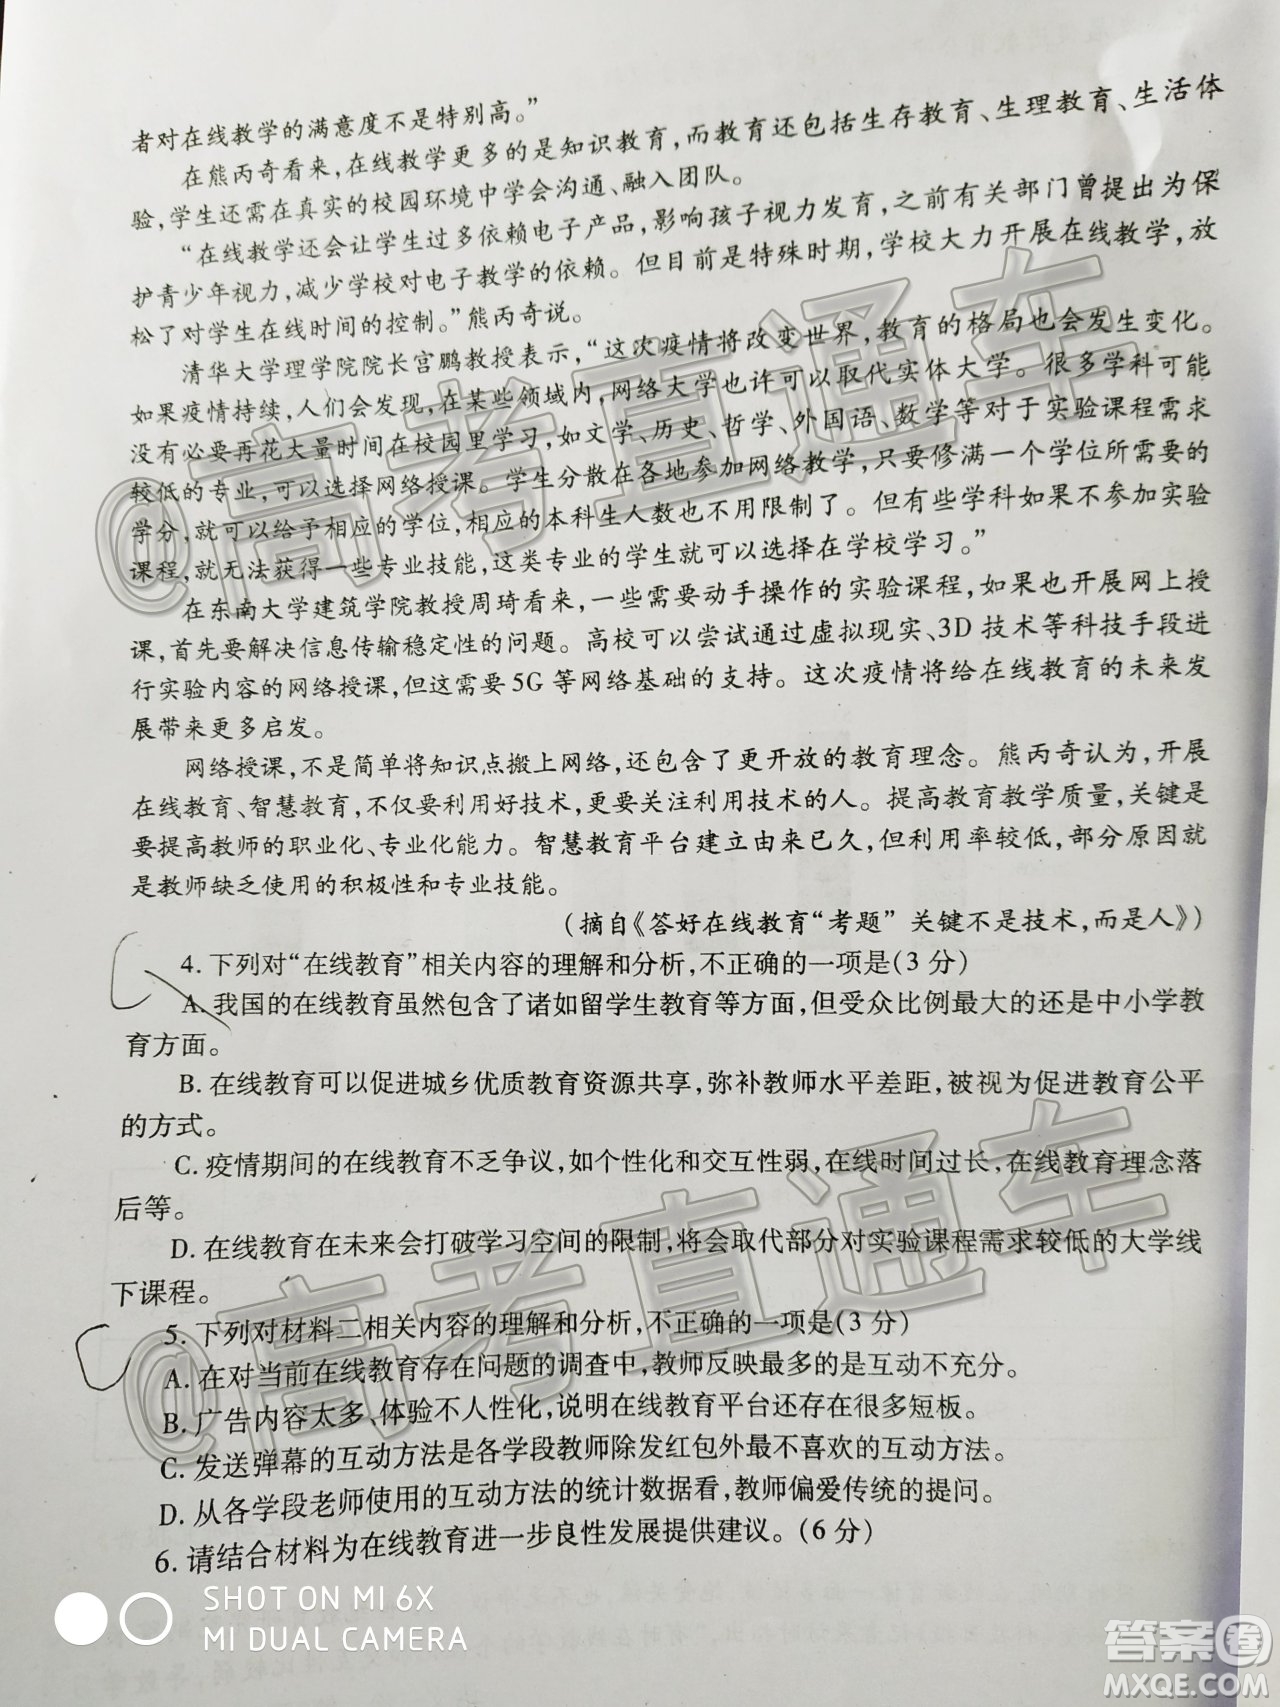 者对在线教学的满意度不是特别高。”
在熊丙奇看来，在线教学更多的是知识教育，而教育还包括生存教育、生理教育、生活体
验，学生还需在真实的校园环境中学会沟通、融入团队。
“在线教学还会让学生过多依赖电子产品，影响孩子视力发育，之前有关部门曾提出为保
护青少年视力，减少学校对电子教学的依赖。但目前是特殊时期，学校大力开展在线教学，放
松了对学生在线时间的控制。”熊丙奇说。
清华大学理学院院长宫鹏教授表示，“这次疫情将改变世界，教育的格局也会发生变化。
如果疫情持续，人们会发现，在某些领域内，网络大学也许可以取代实体大学。很多学科可能
没有必要再花大量时间在校园里学习，如文学、历史、哲学、外国语、数学等对于实验课程需求
较低的专业，可以选择网络授课。学生分散在各地参加网络教学，只要修满一个学位所需的
学分，就可以给予相应的学位，相应的本科生人数也不用限制了。但有些学科如果不参加实验
课程，就无法获得一些专业技能，这类专业的学生就可以选择在学校学习。”
在东南大学建筑学院教授周琦看来，一些需要动手操作的实验课程，如果也开展网上授
课，首先要解决信息传输稳定性的问题。高校可以尝试通过虚拟现实、3D 技术等科技手段进
行实验内容的网络授课，但这需要 5G 等网络基础的支持。这次疫情将给在线教育的未来发
展带来更多启发。
网络授课，不是简单将知识点搬上网络，还包含了更开放的教育理念。熊丙奇认为，开展
在线教育、智慧教育，不仅要利用好技术，更要关注利用技术的人。提高教育教学质量，关键是
要提高教师的职业化、专业化能力。智慧教育平台建立由来已久，但利用率较低，部分原因就
是教师缺乏使用的积极性和专业技能。
（摘自《答好在线教育“考题” 关键不是技术，而是人》）
4. 下列对“在线教育”相关内容的理解和分析，不正确的一项是(3 分)
A. 我国的在线教育虽然包含了诸如留学生教育等方面，但受众比例最大的还是中小学教
育方面。
B. 在线教育可以促进城乡优质教育资源共享，弥补教师水平差距，被视为促进教育公平
的方式。
C. 疫情期间的在线教育不乏争议，如个性化和交互性弱，在线时间过长，在线教育理念落
后等。
D. 在线教育在未来会打破学习空间的限制，将会取代部分对实验课程需求较低的大学线
下课程。
5. 下列对材料二相关内容的理解和分析，不正确的一项是(3 分)
A. 在对当前在线教育存在问题的调查中，教师反映最多的是互动不充分。
B. 广告内容太多、体验不人性化，说明在线教育平台还存在很多短板。
C. 发送弹幕的互动方法是各学段教师除发红包外最不喜欢的互动方法。
D. 从各学段老师使用的互动方法的统计数据看，教师偏爱传统的提问。
6. 请结合材料为在线教育进一步良性发展提供建议。(6 分)
@高考直通车
@高考直通车
SHOT ON MI 6X
MI DUAL CAMERA
答案圈
MXQE.COM